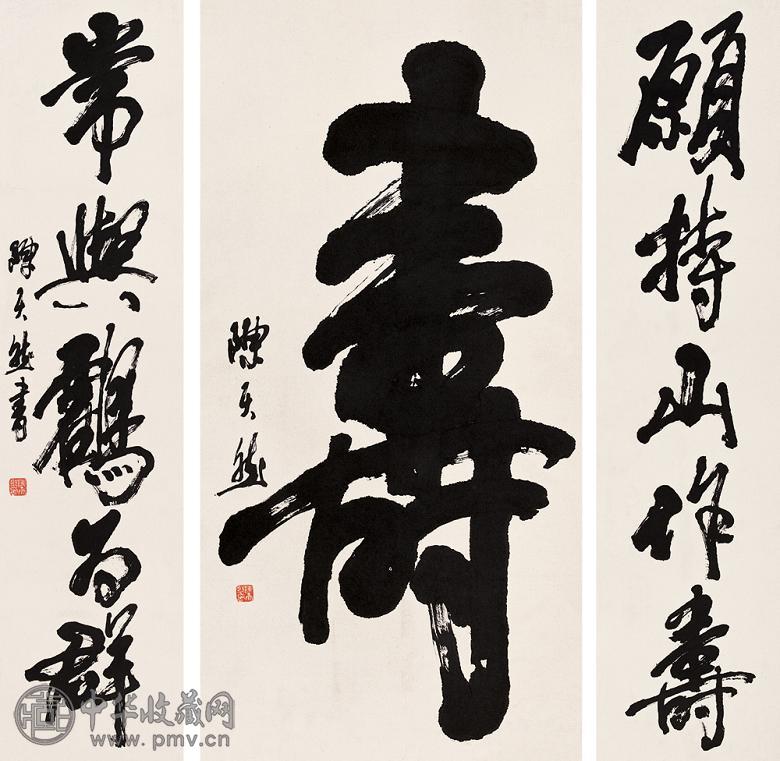 願持山作壽
壽
陳天然
常與鶴为群
陳天然書
中华收藏网
www.pmv.cn